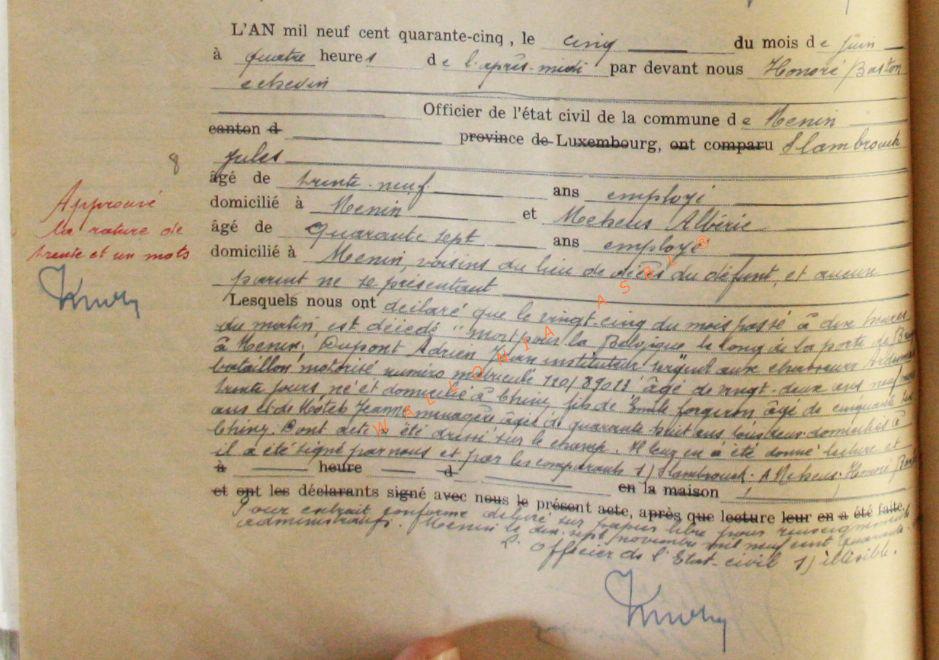 L'AN mil neuf cent quarante-cinq, le cinq du mois de juin
à quatre heures de l'après-midi par devant nous Honoré Baston
echevin
Officier de l'état civil de la commune de Menin
canton d province de Luxembourg, ont comparu Slambrouck
Jules
8
âgé de trente-neuf ans employé
domicilié à Menin et Meheus Albéric
âgé de quarante sept ans employé
domicilié à Menin, voisins du lieu de décès du défunt, et aucun
parent ne se présentant
Approuvé
la rature de
trente et un mots
Lesquels nous ont déclaré que le vingt-cinq du mois passé à dix heures
du matin, est décédé "mort pour la Belgique" le long de la porte de
à Menin: Dupont Adrien Jean instituteur sergent aux chasseurs Ardennais
bataillon motorisé numéro matricule âgé de vingt-deux ans neuf mois
trente jours, né et domicilié à Chiny, fils de Emile forgeron, âgé de cinquante
ans et de Hosteh Jeanne ménagère âgée de quarante huit ans, tous deux domiciliés à
Chiny. Dont acte a été dressé sur le champ. Il leur en a été donné lecture et
il a été signé par nous et par les comparants s) Slambrouck. A Meheus. Honoré
à heure d en la maison
et ont les déclarants signé avec nous le présent acte, après que lecture leur en a été faite.
Pour extrait conforme délivré sur papier libre pour renseignements
administratifs. Menin le dix-sept novembre mil neuf cent quarante
L'Officier de l'Etat-civil s) illisible.
WALLONIA ASBL